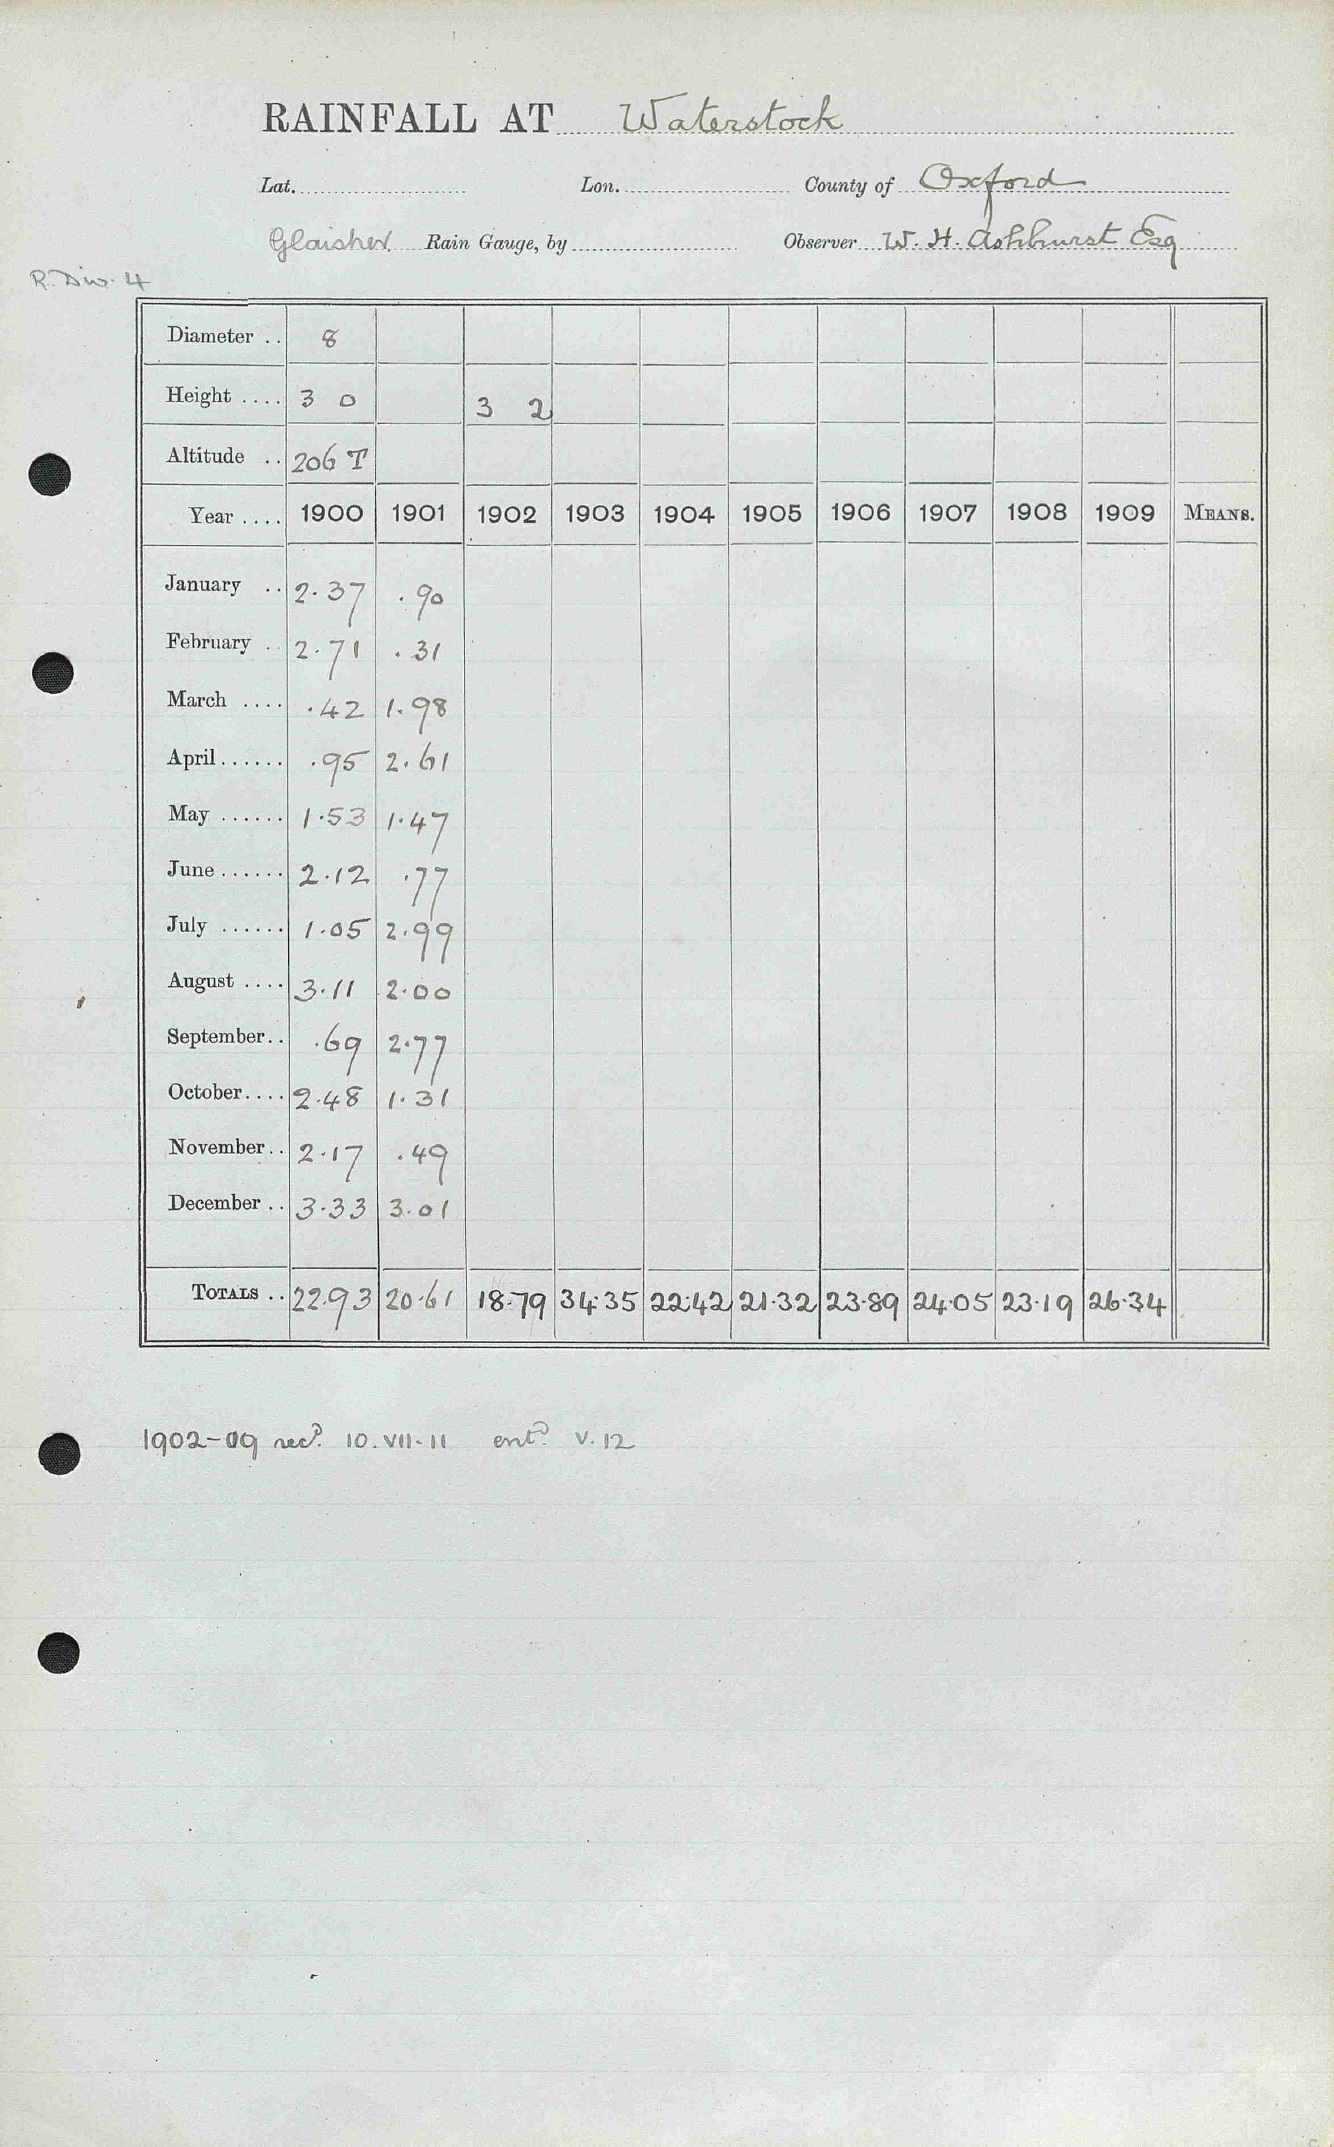 RAINFALL AT Waterstock
Lat. Lon. County of Oxford
Glaisher Rain Gauge, by Observer W. H. Ashhurst Esq
R. Div. 4
Diameter .. 8
Height .... 3 0 3 2
Altitude .. 206 T
Year .... 1900 1901 1902 1903 1904 1905 1906 1907 1908 1909 MEANS.
January .. 2.37 .90
February .. 2.71 .31
March .... .42 1.98
April...... .95 2.61
May ...... 1.53 1.47
June...... 2.12 .77
July ...... 1.05 2.99
August .... 3.11 2.00
September.. .69 2.77
October.... 2.48 1.31
November.. 2.17 .49
December .. 3.33 3.01
TOTALS .. 22.93 20.61 18.79 34.35 22.42 21.32 23.89 24.05 23.19 26.34
1902-09 recd. 10.VII.11 entd. V.12